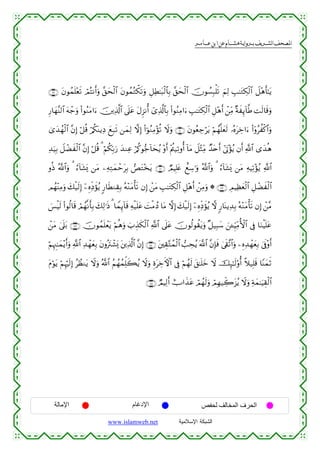 المصحف الشريف برواية هشام عن ابن عامر
يَٰٓأَهْلَ ٱلْكِتَٰبِ لِمَ تَلْبِسُونَ ٱلْحَقَّ بِٱلْبَٰطِلِ وَتَكْتُمُونَ ٱلْحَقَّ وَأَنتُمْ تَعْلَمُونَ
وَقَالَت طَّآئِفَةٌ مِّنْ أَهْلِ ٱلْكِتَٰبِ ءَامِنُوا۟ بِٱلَّذِىٓ أُنزِلَ عَلَى ٱلَّذِينَ ءَامَنُوا۟ وَجْهَ ٱلنَّهَارِ
وَٱكْفُرُوٓا۟ ءَاخِرَهُۥ لَعَلَّهُمْ يَرْجِعُونَ وَلَا تُؤْمِنُوٓا۟ إِلَّا لِمَن تَبِعَ دِينَكُمْ قُلْ إِنَّ ٱلْهُدَىٰ
هُدَى ٱللَّهِ أَن يُؤْتَىٰٓ أَحَدٌ مِّثْلَ مَآ أُوتِيتُمْ أَوْ يُحَآجُّوكُمْ عِندَ رَبِّكُمْ ۗ قُلْ إِنَّ ٱلْفَضْلَ بِيَدِ
ٱللَّهِ يُؤْتِيهِ مَن يَشَآءُ ۗ وَٱللَّهُ وَٰسِعٌ عَلِيمٌ يَخْتَصُّ بِرَحْمَتِهِۦ مَن يَشَآءُ ۗ وَٱللَّهُ ذُو
ٱلْفَضْلِ ٱلْعَظِيمِ ۞ وَمِنْ أَهْلِ ٱلْكِتَٰبِ مَنْ إِن تَأْمَنْهُ بِقِنطَارٍ يُؤَدِّهِۦٓ إِلَيْكَ وَمِنْهُم
مَّنْ إِن تَأْمَنْهُ بِدِينَارٍ لَّا يُؤَدِّهِۦٓ إِلَيْكَ إِلَّا مَا دُمْتَ عَلَيْهِ قَآئِمًا ۗ ذَٰلِكَ بِأَنَّهُمْ قَالُوا۟ لَيْسَ
عَلَيْنَا فِى ٱلْأُمِّيِّۦنَ سَبِيلٌ وَيَقُولُونَ عَلَى ٱللَّهِ ٱلْكَذِبَ وَهُمْ يَعْلَمُونَ بَلَىٰ مَنْ
أَوْفَىٰ بِعَهْدِهِۦ وَٱتَّقَىٰ فَإِنَّ ٱللَّهَ يُحِبُّ ٱلْمُتَّقِينَ إِنَّ ٱلَّذِينَ يَشْتَرُونَ بِعَهْدِ ٱللَّهِ وَأَيْمَٰنِهِمْ
ثَمَنًا قَلِيلًا أُو۟لَٰٓئِكَ لَا خَلَٰقَ لَهُمْ فِى ٱلْءَاخِرَةِ وَلَا يُكَلِّمُهُمُ ٱللَّهُ وَلَا يَنظُرُ إِلَيْهِمْ يَوْمَ
ٱلْقِيَٰمَةِ وَلَا يُزَكِّيهِمْ وَلَهُمْ عَذَابٌ أَلِيمٌ
الحرف المخالف لحفص الإدغام الإمالة
الشبكة الإسلامية www.islamweb.net